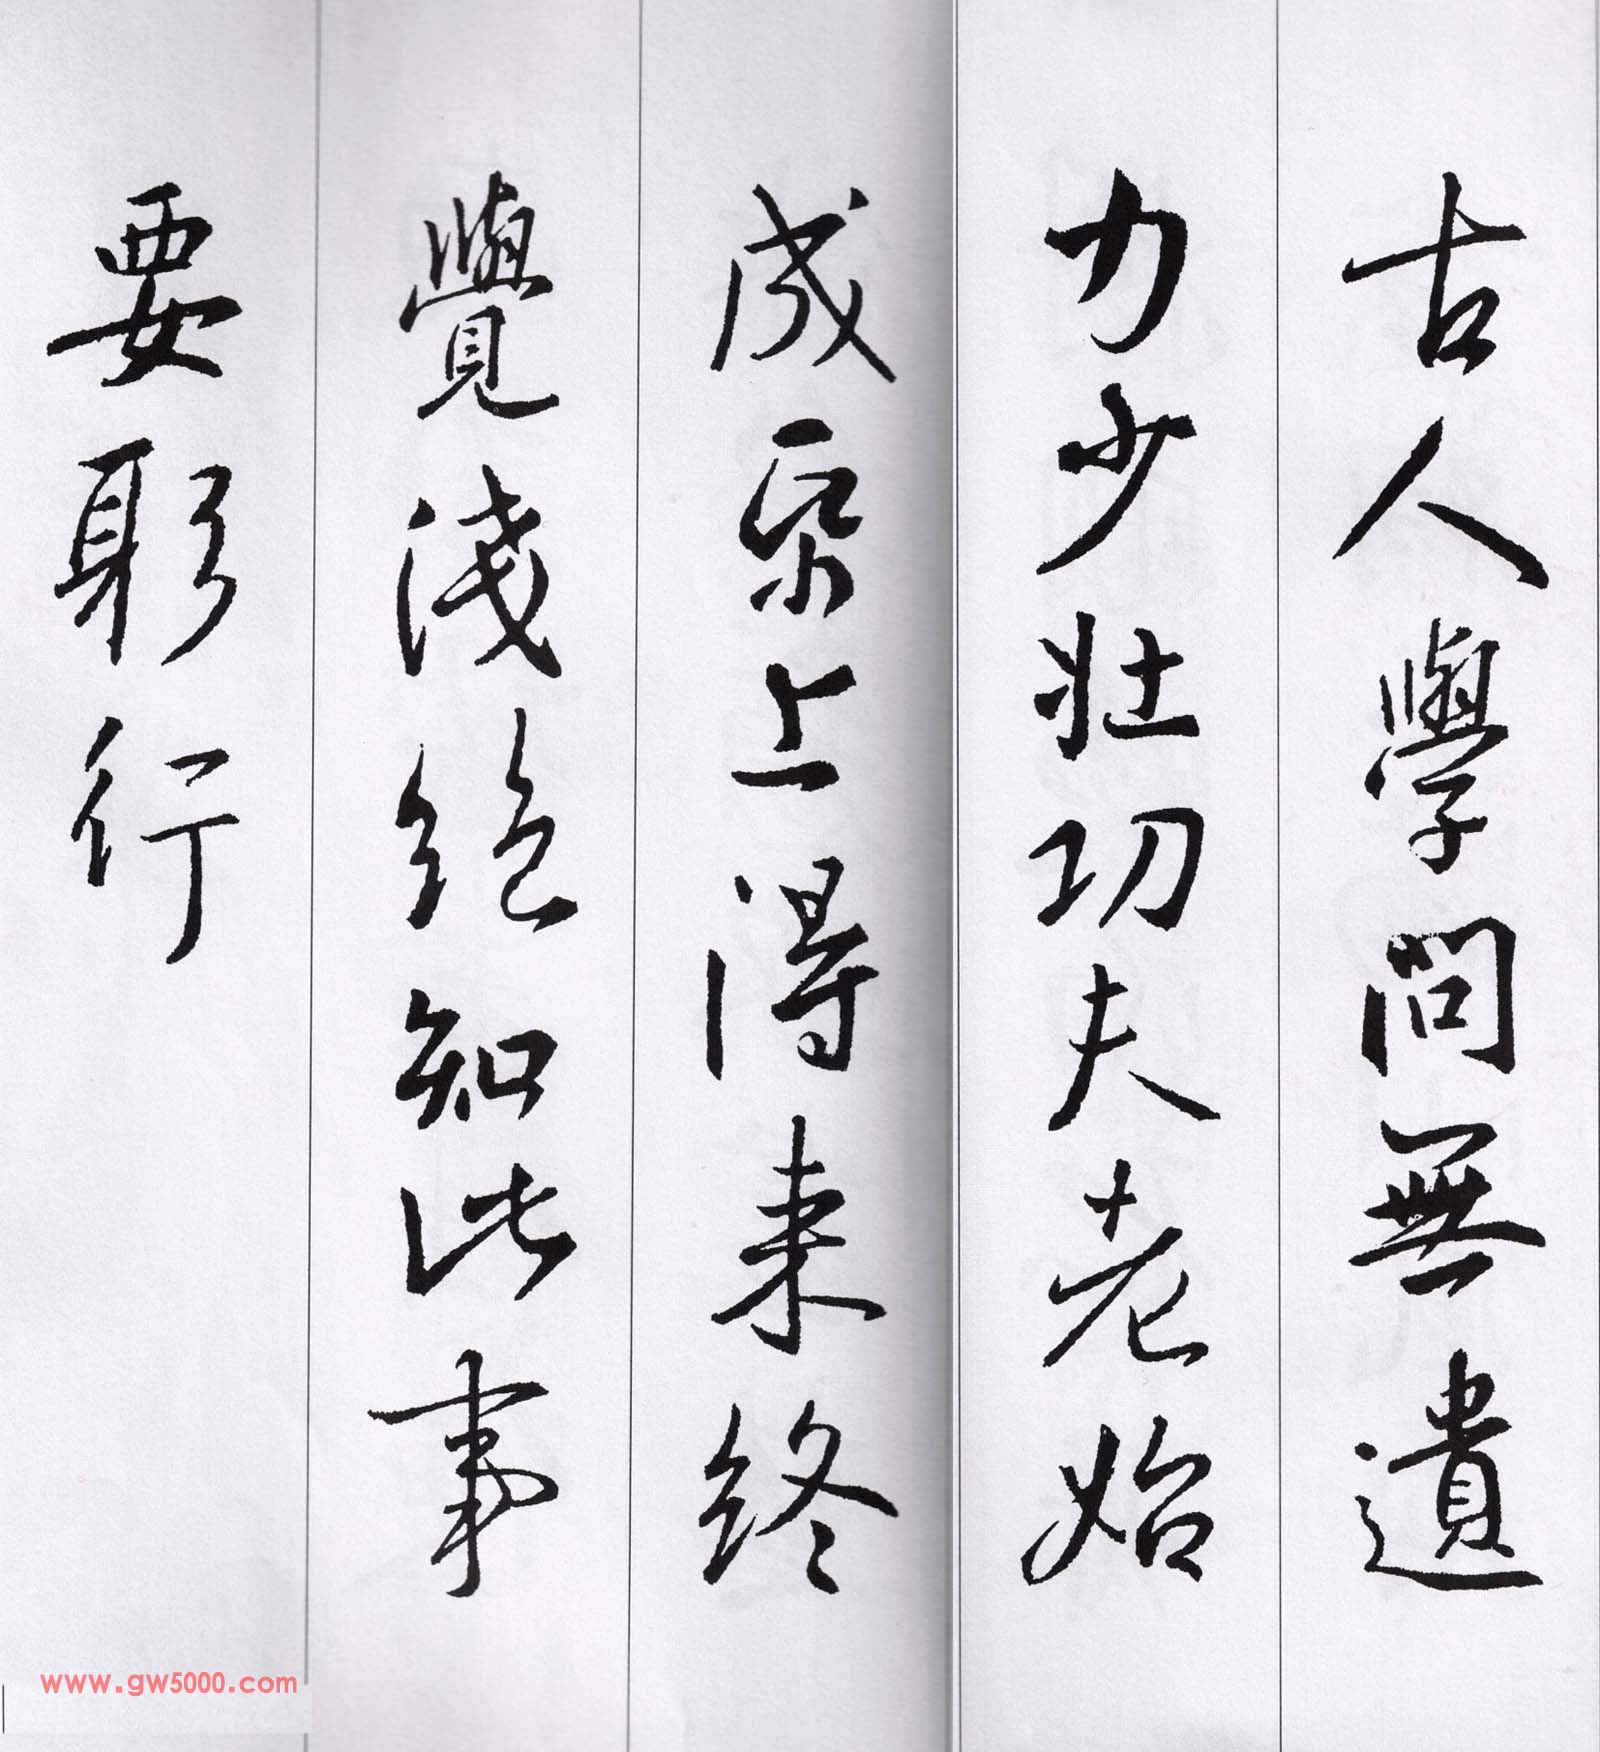 古人學問無遺
力少壯功夫老始
成帋上得来終
覺淺絶知此事
要躬行
www.gw5000.com